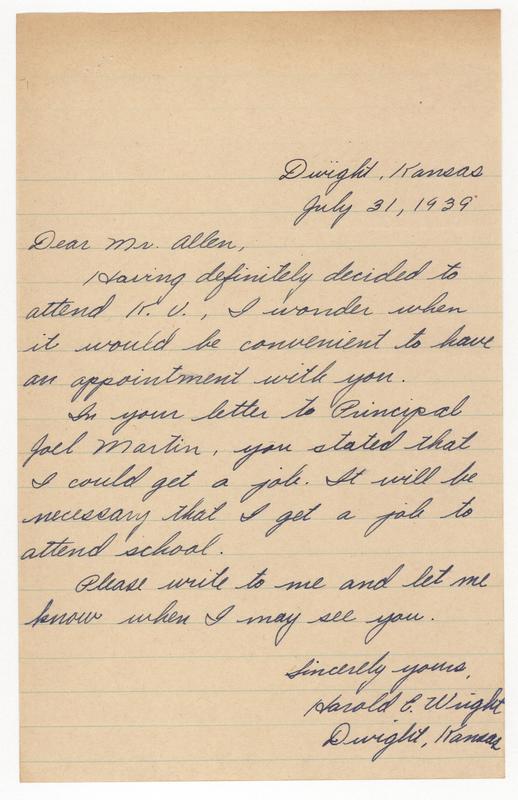 Dwight, Kansas
July 31, 1939
Dear Mr. Allen,
Having definitely decided to
attend K. U., I wonder when
it would be convenient to have
an appointment with you.
In your letter to Principal
Joel Martin, you stated that
I could get a job. It will be
necessary that I get a job to
attend school.
Please write to me and let me
know when I may see you.
Sincerely yours,
Harold E. Wright
Dwight, Kansas